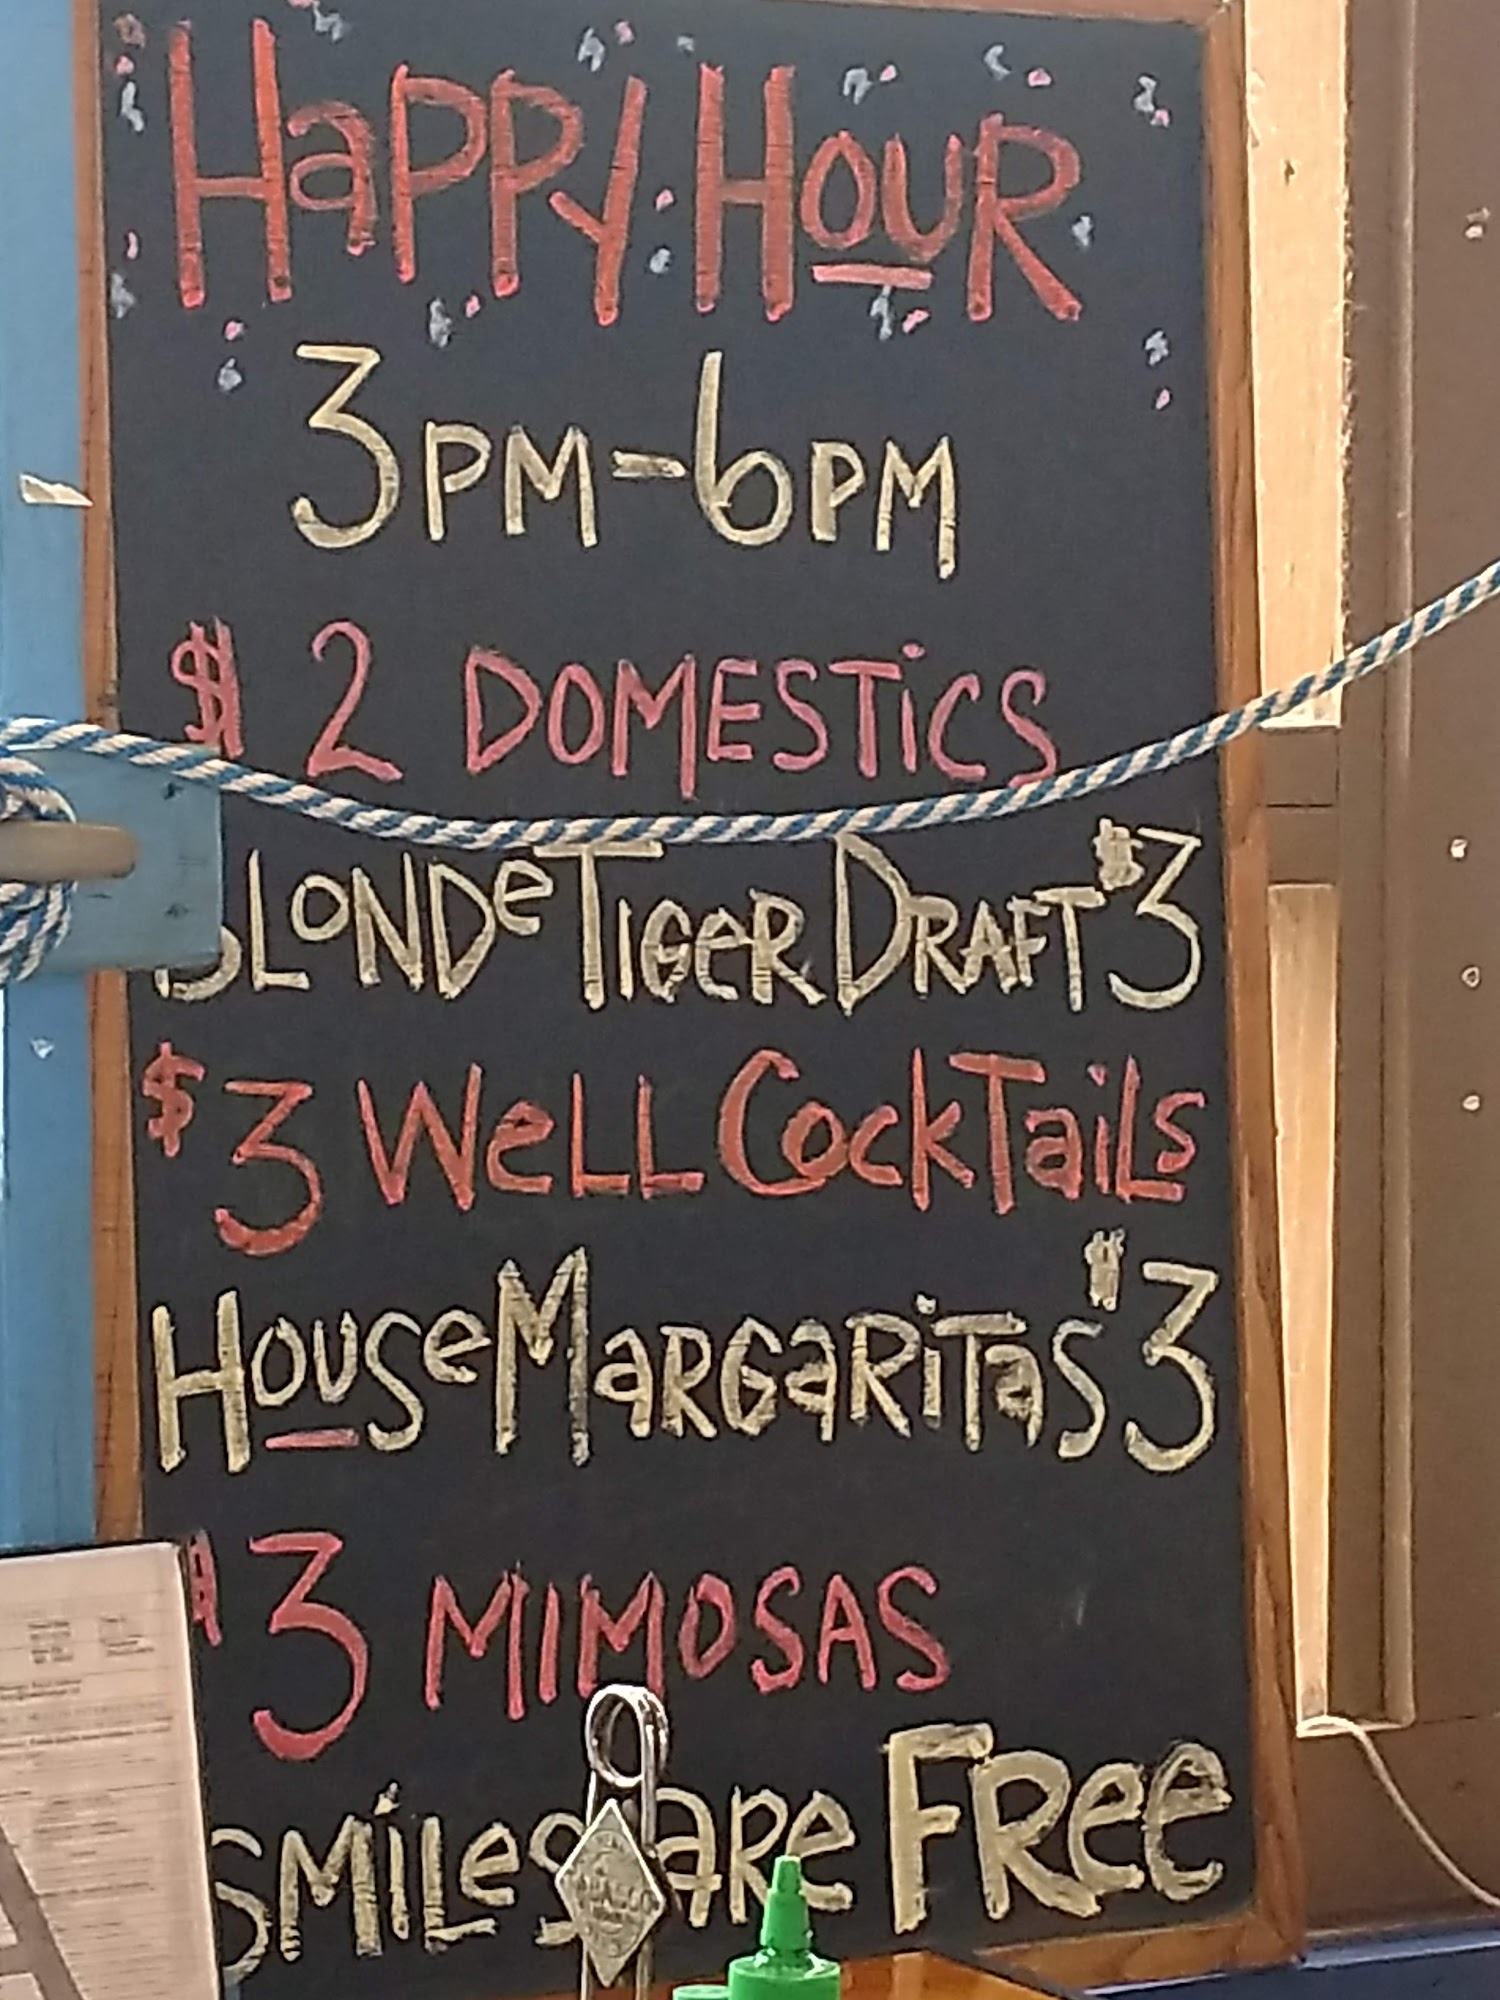 Happy Hour
3PM-6PM
$2 DOMESTiCS
BLONDe TIGER DRAFT $3
$3 WeLL CockTaiLs
HOUSe MaRGaRiTas $3
$3 MIMOSAS
SMiLes aRe FRee
TABASCO